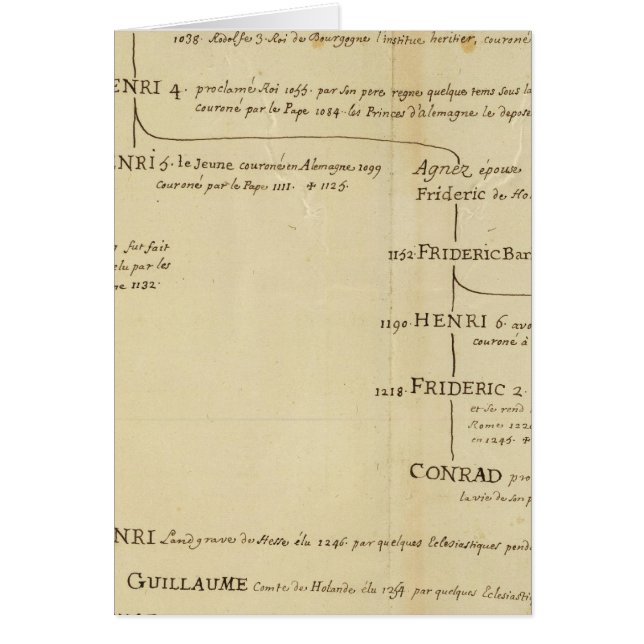 1038. Rodolfe 3. Roi de Bourgogne l'institue heritier, couroné
ENRI 4. proclamé Roi 1055. par son pere regne quelque tems sous la
couroné par le Pape 1084. les Princes d'alemagne le depose
ENRI 5. le Jeune couroné en Alemagne 1099
couroné par le Pape 1111. ✠ 1125.
Agnez épouse
Frideric de Ho
fut fait
elu par les
ne 1132.
1152. FRIDERIC Bar
1190. HENRI 6. avo
couroné à
1218. FRIDERIC 2.
et se rend
Rome 122
en 1245. ✠
CONRAD pro
la vie de son p
NRI Landgrave de Hesse élu 1246. par quelques Eclesiastiques pend
GUILLAUME Comte de Holande élu 1254. par quelques Eclesiasti